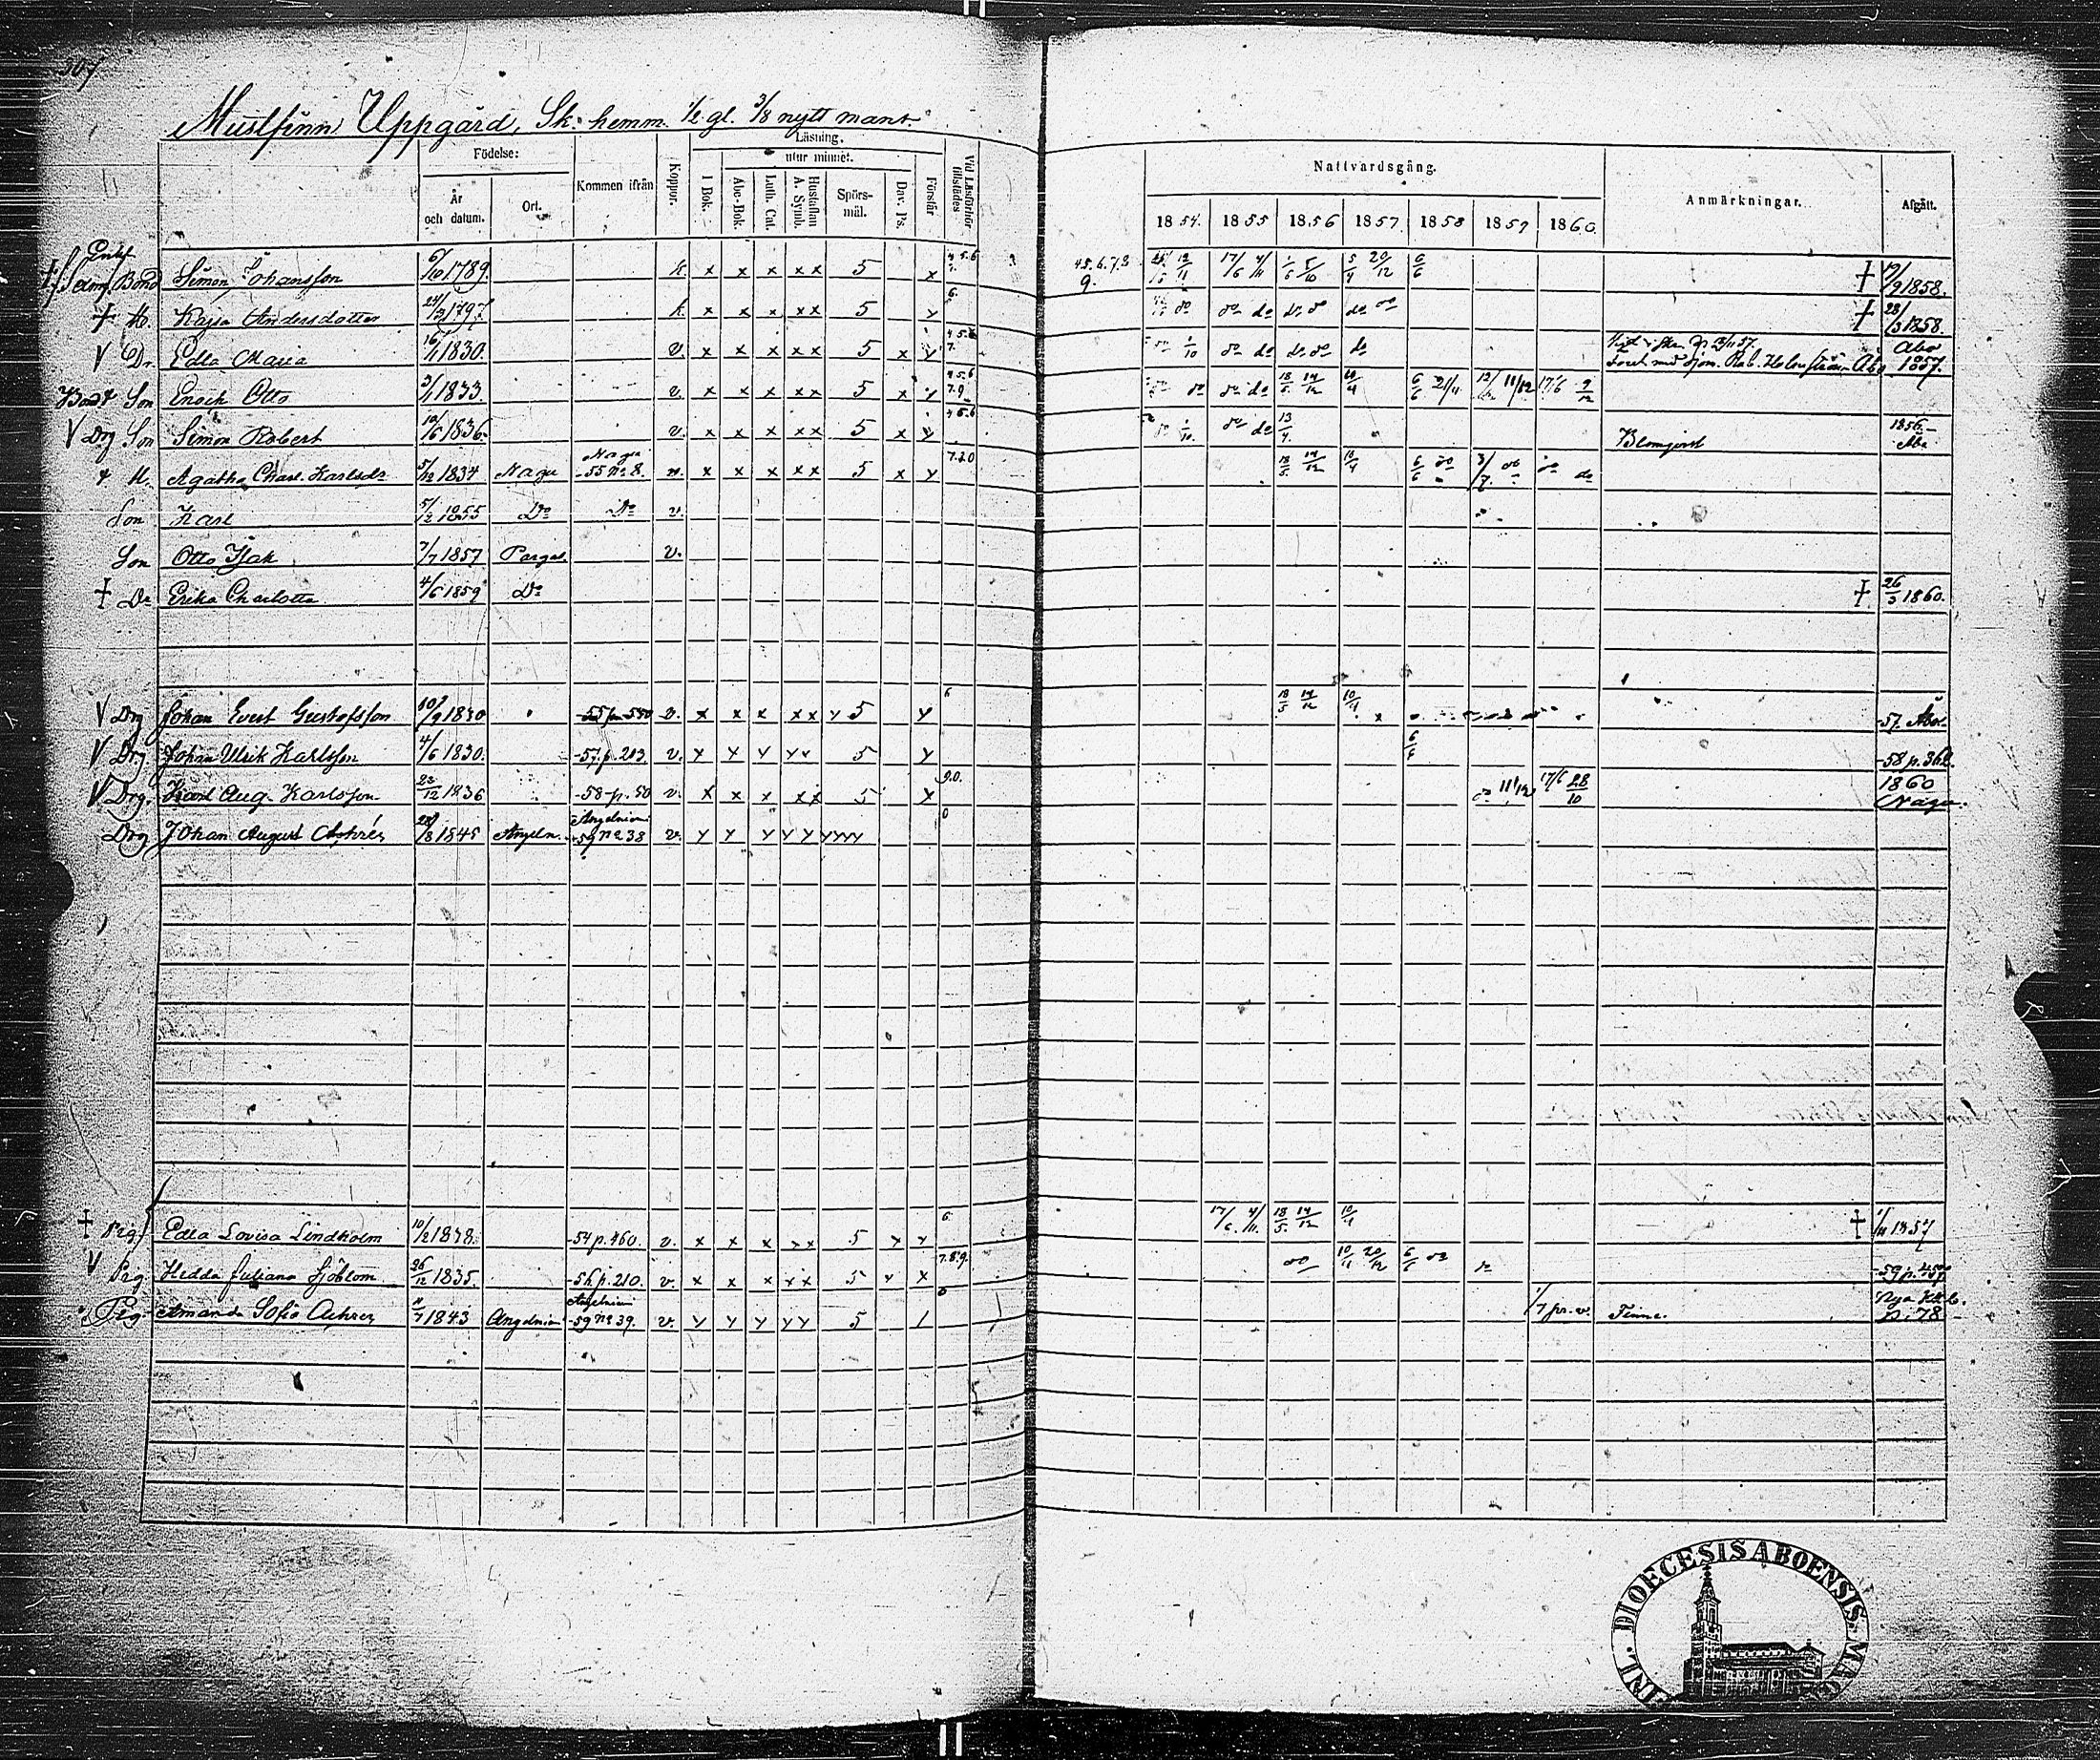 307
Muslfinn Uppgård, Sk: hemm. 1/2 gl. 3/8 nytt mant.
Födelse:
År och datum.
Ort.
Kommen ifrån
Koppor.
Läsning,
I Bok.
utur minnet.
Abc-Bok.
Luth. Cat.
Hustaflan A. Symb.
Spörs-mål.
Dav. Ps.
Förstår
Vid Läsförhör tillstädes
Nattvardsgång.
1854. 1855 1856 1857 1858 1859 1860.
Anmärkningar.
Afgått.
Enkl
Bond Simon Johansson 6/10 1789. k x x x x x 5 x 4 5. 6 45.6.7.8 9. 17/6 4/11 5/10 20/12 6/6 † 19/9 1858.
† H. Kajsa Andersdotter 24/2 1797 k x x x x x 5 x 6. do do do do do † 28/3 1858.
V Dr Edla Maria 16/1 1830. v. x x x x x 5 x x 4 5. 6 7. 1/10 do do do do do Åbo 1857.
Bond Son Enoch Otto 3/1 1833. v. x x x x x 5 x x 4 5. 6 7. 9 do do do 18/5 14/12 6/6 21/11 11/12 17/6 9/12
V Drg Son Simon Robert 10/6 1836. v. x x x x x 5 x x 4 5. 6 1/10. do do 13/4. Blomqvist 1856. Åbo
H. Agatha Charl. Karlsdr 5/12 1834 Nagu Nagu -55 No 8. v. x x x x x 5 x x 7. 8. 0 18/5 14/12 6/6 do 3/7 do do do
Son Karl 5/2 1855 Do Do v.
Son Otto Isak 7/7 1857 Pargas v.
† Dr Erika Charlotta 4/6 1859 Do † 26/3 1860.
V Drg Johan Evert Gustafsson 10/9 1830 v. x x x x x x 5 x 6 18/5 14/12 10/4 -57. Åbo
V Drg Johan Ulrik Karlsson 4/6 1830. -57. p. 203 v. x x x x x 5 x 6/6 -58 p. 362.
V Drg. Karl Aug. Karlsson 23/12 1836 -58 p. 50 v. x x x x x 5 x 9. 0. 11/12 17/6 28/10 1860 Nagu.
Drg Johan August Achrén 28/8 1845 Angeln. Angelniemi -59 No 38 v. x x x x x x x x x 0
† Pig Edla Lovisa Lindholm 10/2 1838. -54 p. 460. v. x x x x x 5 x x 6 17/6. 4/11. 18/5. 14/12 10/4 † 1/11 1857
V Pig Hedda Juliana Sjöblom 26/12 1835. -56 p. 210. v. x x x x x 5 x x 7. 8. 9. do 20/12 6/6 do -59 p. 457
Pig Amanda Sofia Achren 4/7 1843 Angelniemi Angelniemi -59 No 39. v. x x x x x 5 / 0 1/7 pr. v. Finnes. Nya Kkb. p. 78
FINL. DIOECESIS ABOENSIS MAG